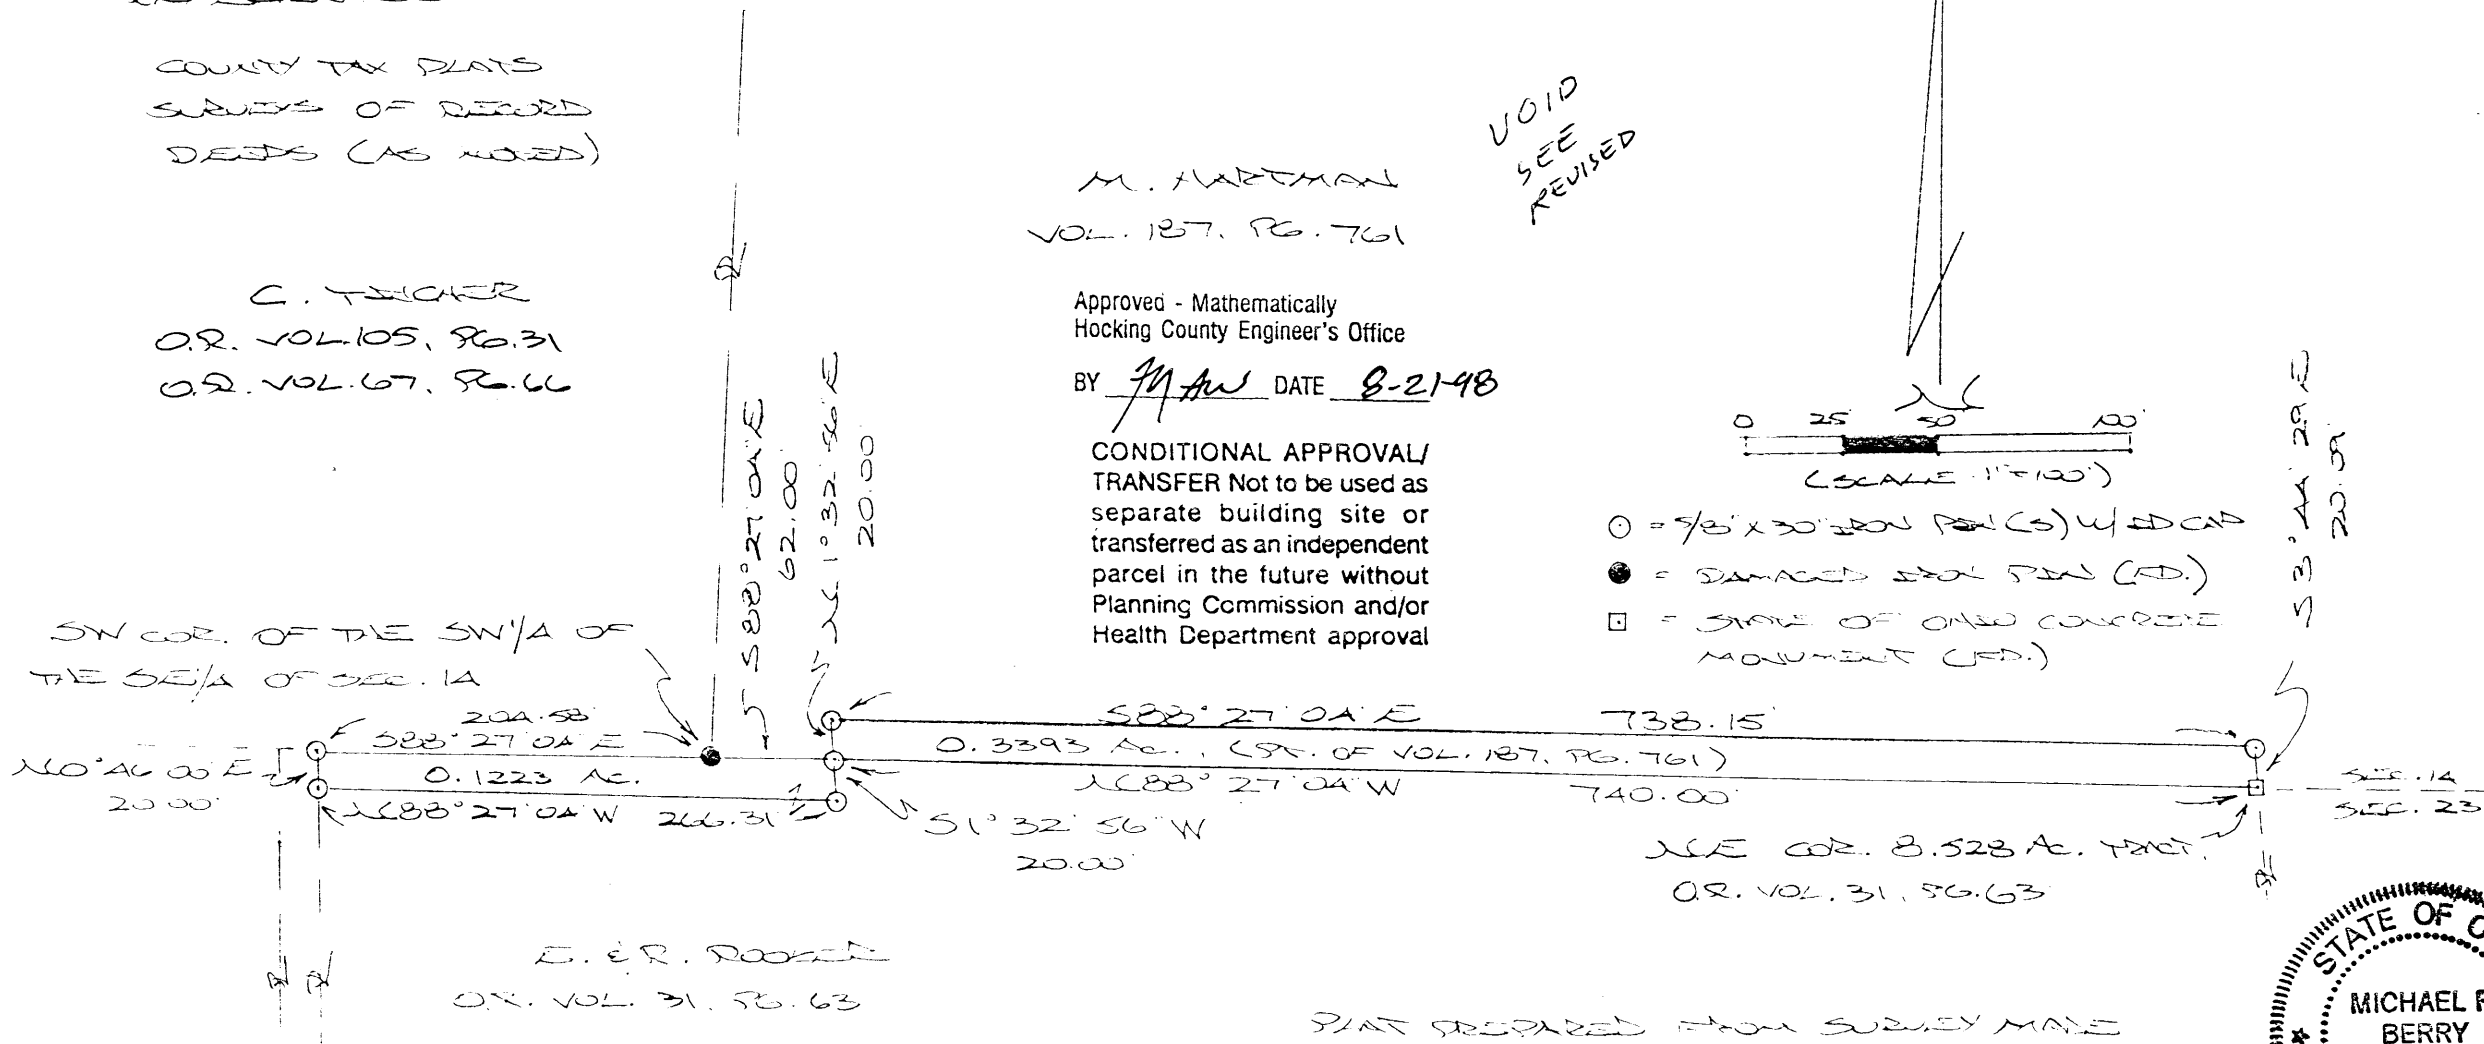 COUNTY TAX PLATS
SURVEYS OF RECORD
DEEDS (AS NOTED)
VOID
SEE
REVISED
M. HARTMAN
VOL. 187, PG. 761
C. TINCHER
O.R. VOL. 105, PG. 31
O.R. VOL. 67, PG. 66
Approved - Mathematically
Hocking County Engineer's Office
BY DATE 8-21-98
CONDITIONAL APPROVAL/
TRANSFER Not to be used as
separate building site or
transferred as an independent
parcel in the future without
Planning Commission and/or
Health Department approval
0 25 50 100
(SCALE 1"=100')
= 5/8" X 30" IRON PIN (S) W/ ID CAP
= DAMAGED IRON PIN (FD.)
= STATE OF OHIO CONCRETE
MONUMENT (FD.)
S 88° 27' 04" E
62.00'
N 1° 32' 56" E
20.00'
S 3° 44' 29" E
20.09'
SW COR. OF THE SW 1/4 OF
THE SE 1/4 OF SEC. 14
204.58'
S 88° 27' 04" E
N 0° 46' 00" E
20.00'
0.1223 AC.
N 88° 27' 04" W 266.31'
S 88° 27' 04" E 738.15'
0.3393 AC., (PT. OF VOL. 187, PG. 761)
N 88° 27' 04" W 740.00'
S 1° 32' 56" W
20.00'
SEC. 14
SEC. 23
NE COR. 8.528 AC. TRACT,
O.R. VOL. 31, PG. 63
E. & R. ROOKER
O.R. VOL. 31, PG. 63
PLAT PREPARED FROM SURVEY MADE
STATE OF O
MICHAEL P
BERRY